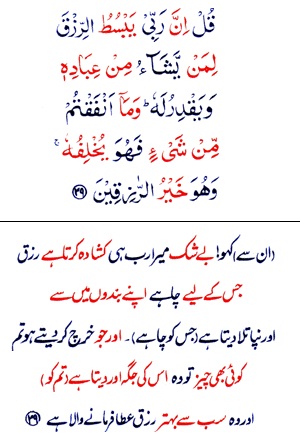 قُلْ اِنَّ رَبِّىْ يَبْسُطُ الرِّزْقَ
لِمَنْ يَّشَآءُ مِنْ عِبَادِهٖ
وَيَقْدِرُ لَهٗ ؕ وَمَاۤ اَنْفَقْتُمْ
مِّنْ شَىْءٍ فَهُوَ يُخْلِفُهٗ ۚ
وَهُوَ خَيْرُ الرّٰزِقِيْنَ ﴿۳۹﴾
(ان سے) کہو! بے شک میرا رب ہی کشادہ کرتا ہے رزق
جس کے لیے چاہے اپنے بندوں میں سے
اور نپا تلا دیتا ہے (جس کو چاہے)۔ اور جو خرچ کر دیتے ہو تم
کوئی بھی چیز تو وہ اس کی جگہ اور دیتا ہے (تم کو)
اور وہ سب سے بہتر رزق عطا فرمانے والا ہے ﴿۳۹﴾